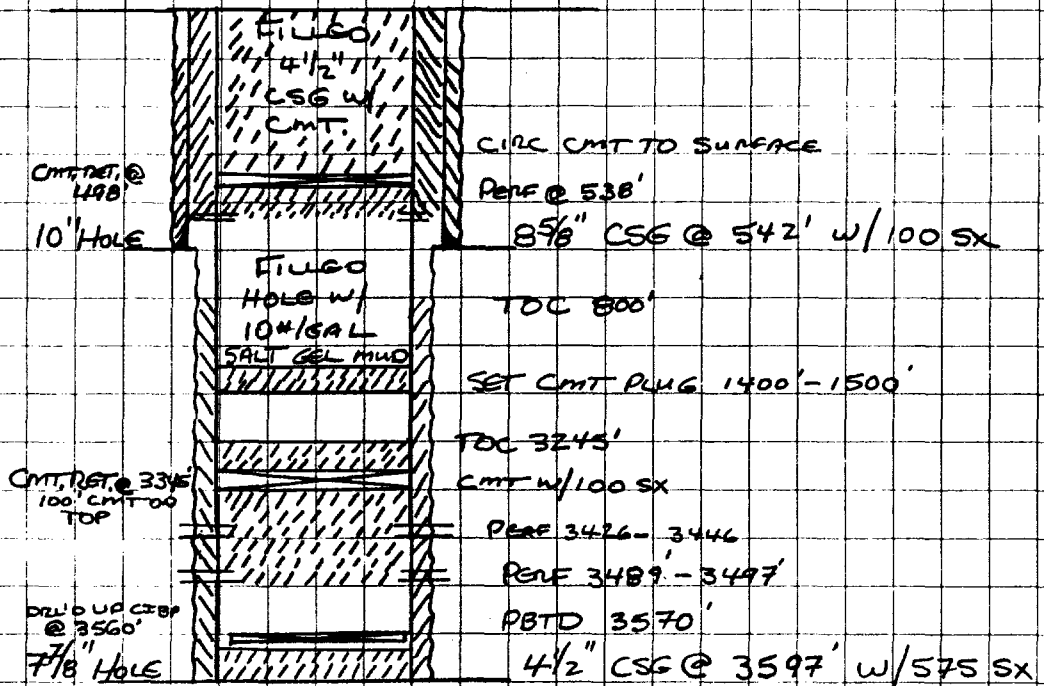 FILLED
4 1/2"
CSG W/
CMT.
CIRC CMT TO SURFACE
CMT. RET. @
498'
PERF @ 538'
10" HOLE
8 5/8" CSG @ 542' W/100 SX
FILLED
HOLE W/
10#/GAL
SALT GEL MUD
TOC 800'
SET CMT PLUG 1400'-1500'
TOC 3245'
CMT. RET. @ 3345'
100' CMT ON
TOP
CMT W/100 SX
PERF 3426-3446
PERF 3489'-3497'
DRL'D UP CIBP
@ 3560'
PBTD 3570'
7 7/8" HOLE
4 1/2" CSG @ 3597' W/575 SX